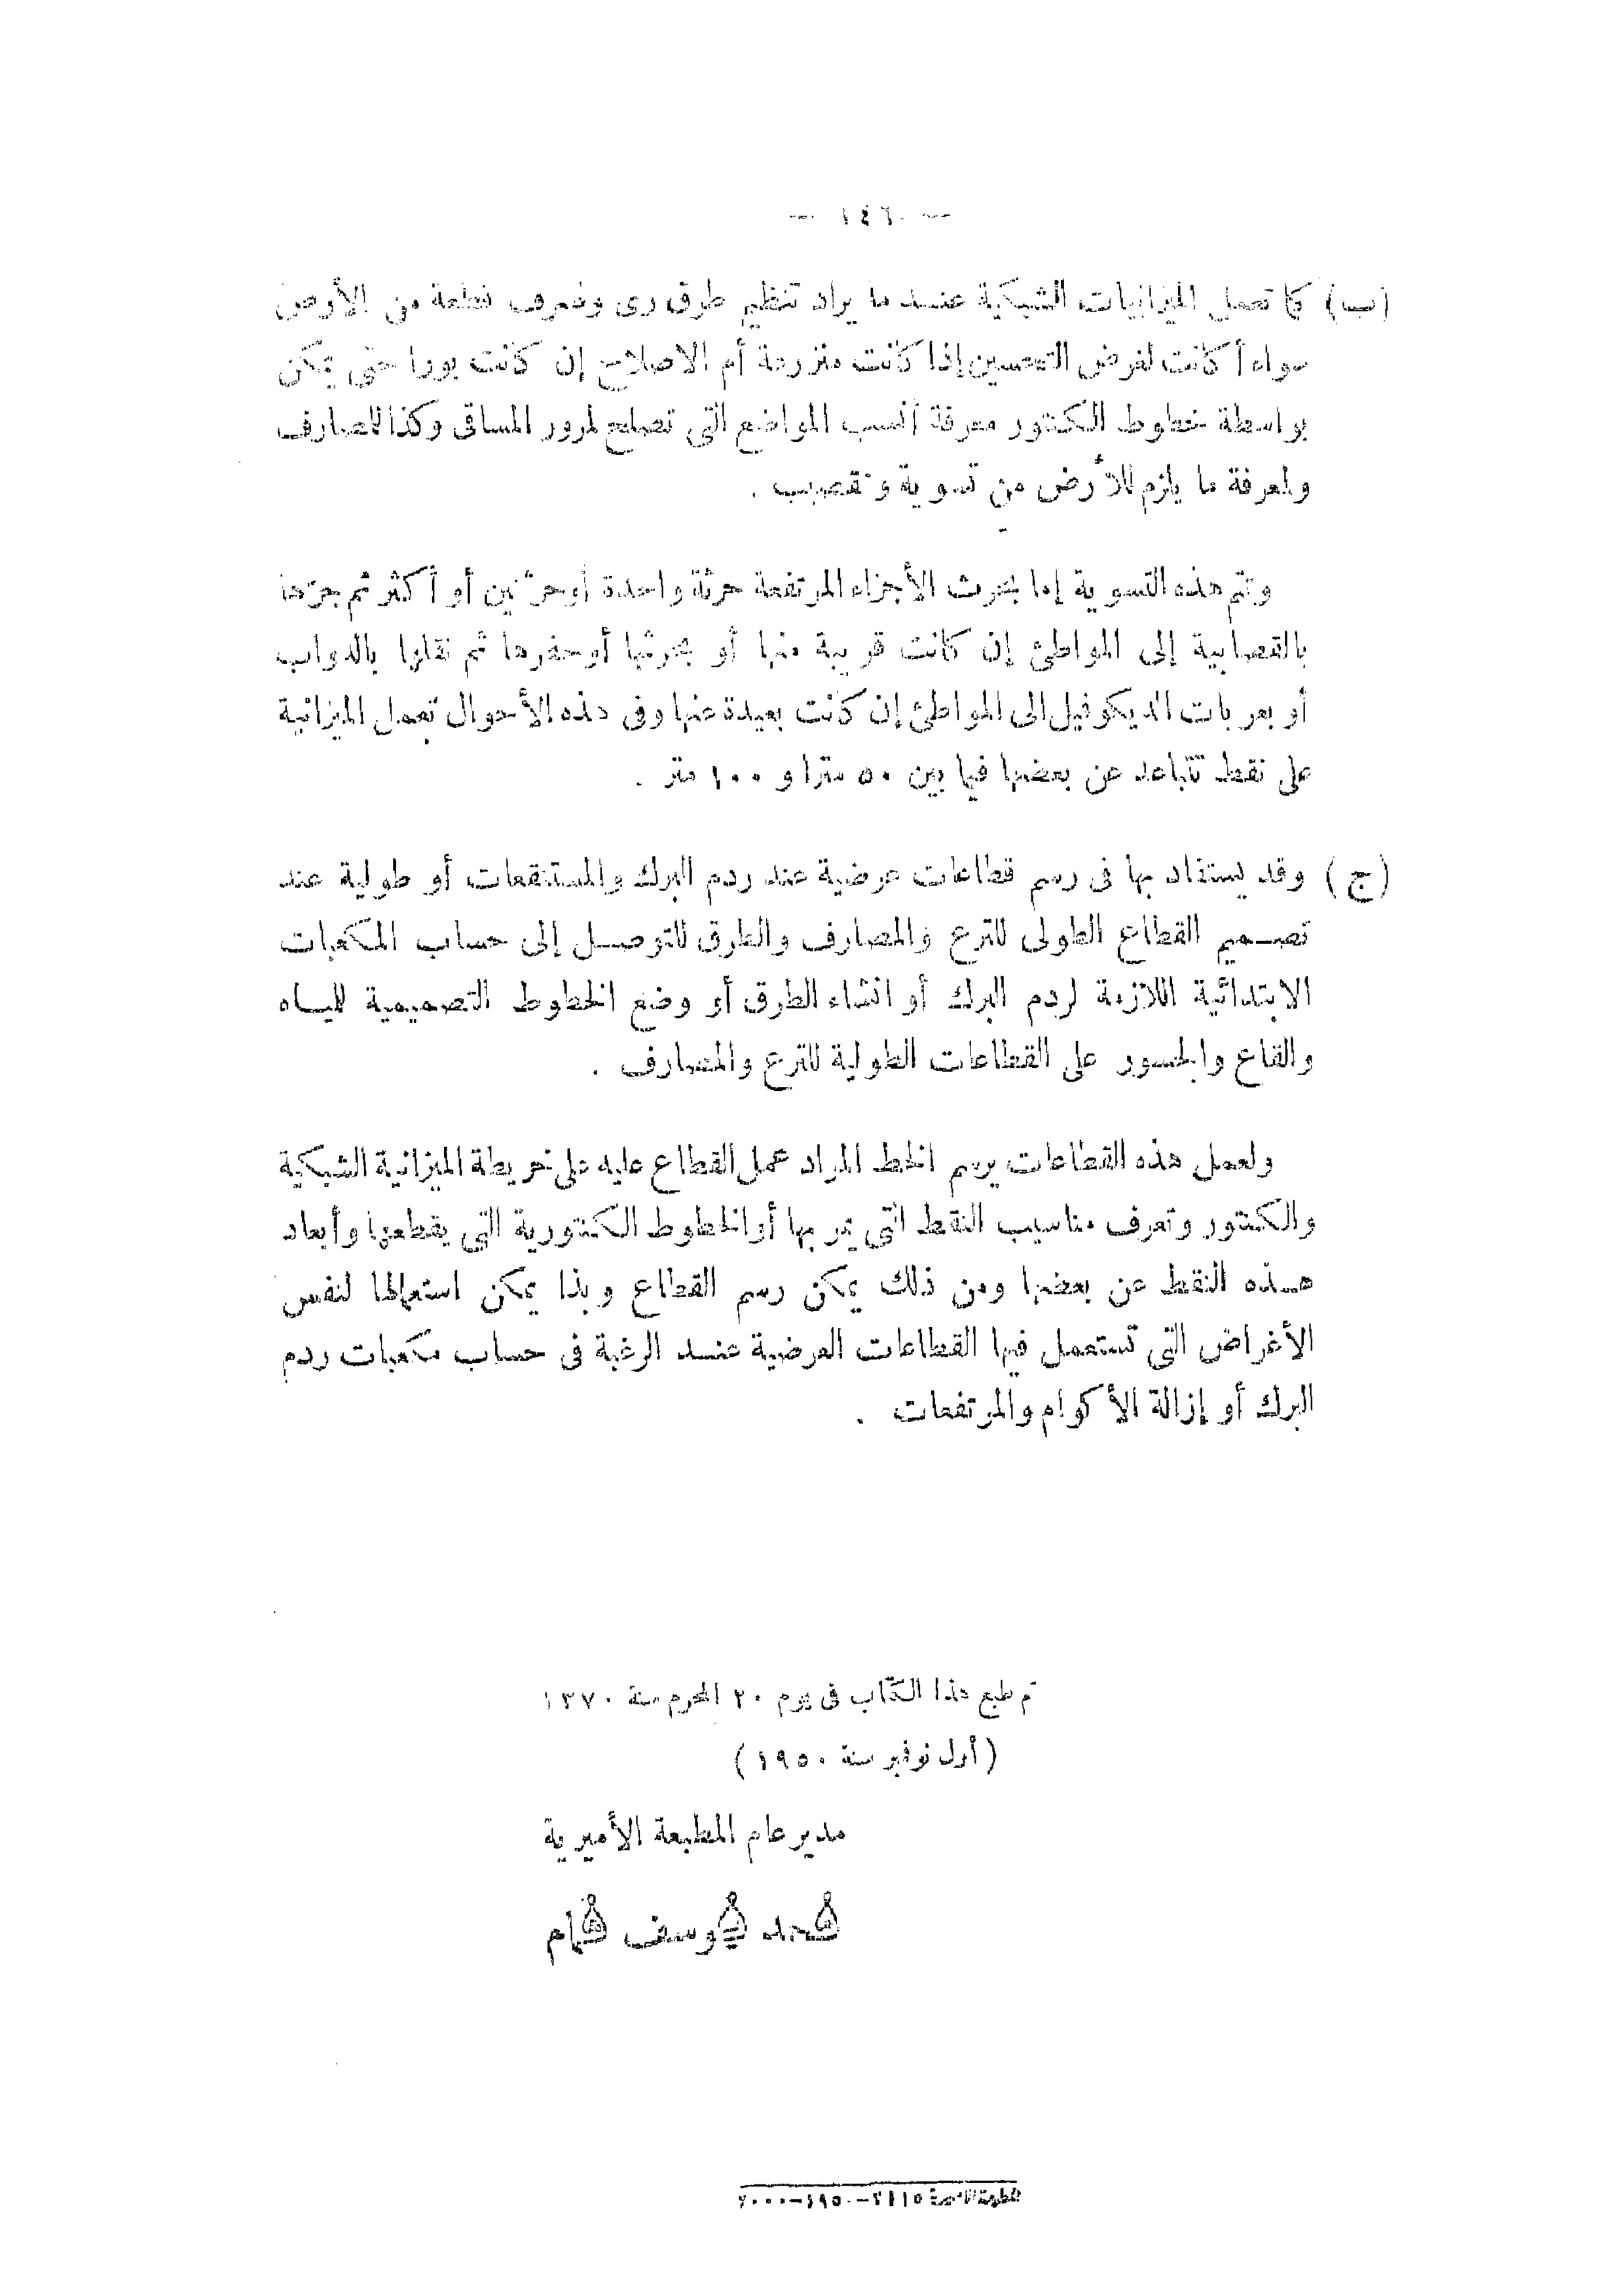 — ١٤٦ —
(ب) كما تعمل الميزانيات الشبكية عند ما يراد تنظيم طرق رى وصرف قطعة من الأرض
سواء أكانت لغرض التحسين إذا كانت منزرعة أم الاصلاح إن كانت بورا حتى يمكن
بواسطة خطوط الكنتور معرفة أنسب المواضع التى تصلح لمرور المساقى وكذا المصارف
ولمعرفة ما يلزم للأرض من تسوية وتقصيب .
وتتم هذه التسوية إما بحرث الأجزاء المرتفعة حرثة واحدة أو حرثتين أو أكثر ثم جرّها
بالقصابية إلى المواطئ إن كانت قريبة منها أو بحرثها أو حفرها ثم نقلها بالدواب
أو بعربات الديكوفيل الى المواطئ إن كانت بعيدة عنها وفى هذه الأحوال تعمل الميزانية
على نقط تتباعد عن بعضها فيما بين ٥٠ مترا و ١٠٠ متر .
(ج) وقد يستفاد بها فى رسم قطاعات عرضية عند ردم البرك والمستنقعات أو طولية عند
تصميم القطاع الطولى للترع والمصارف والطرق للتوصل إلى حساب المكعبات
الابتدائية اللازمة لردم البرك أو انشاء الطرق أو وضع الخطوط التصميمية للمياه
والقاع والجسور على القطاعات الطولية للترع والمصارف .
ولعمل هذه القطاعات يرسم الخط المراد عمل القطاع عليه على خريطة الميزانية الشبكية
والكنتور وتعرف مناسيب النقط التى يمر بها أو الخطوط الكنتورية التي يقطعها وأبعاد
هذه النقط عن بعضها ومن ذلك يمكن رسم القطاع وبذا يمكن استعمالها لنفس
الأغراض التى تستعمل فيها القطاعات العرضية عند الرغبة فى حساب مكعبات ردم
البرك أو إزالة الأكوام والمرتفعات .
تم طبع هذا الكتاب فى يوم ٢٠ المحرم سنة ١٣٧٠
(أول نوفمبر سنة ١٩٥٠)
مدير عام المطبعة الأميرية
محمد يوسف همام
المطبعة الأميرية ٢١١٥-١٩٥٠-٢٠٠٠